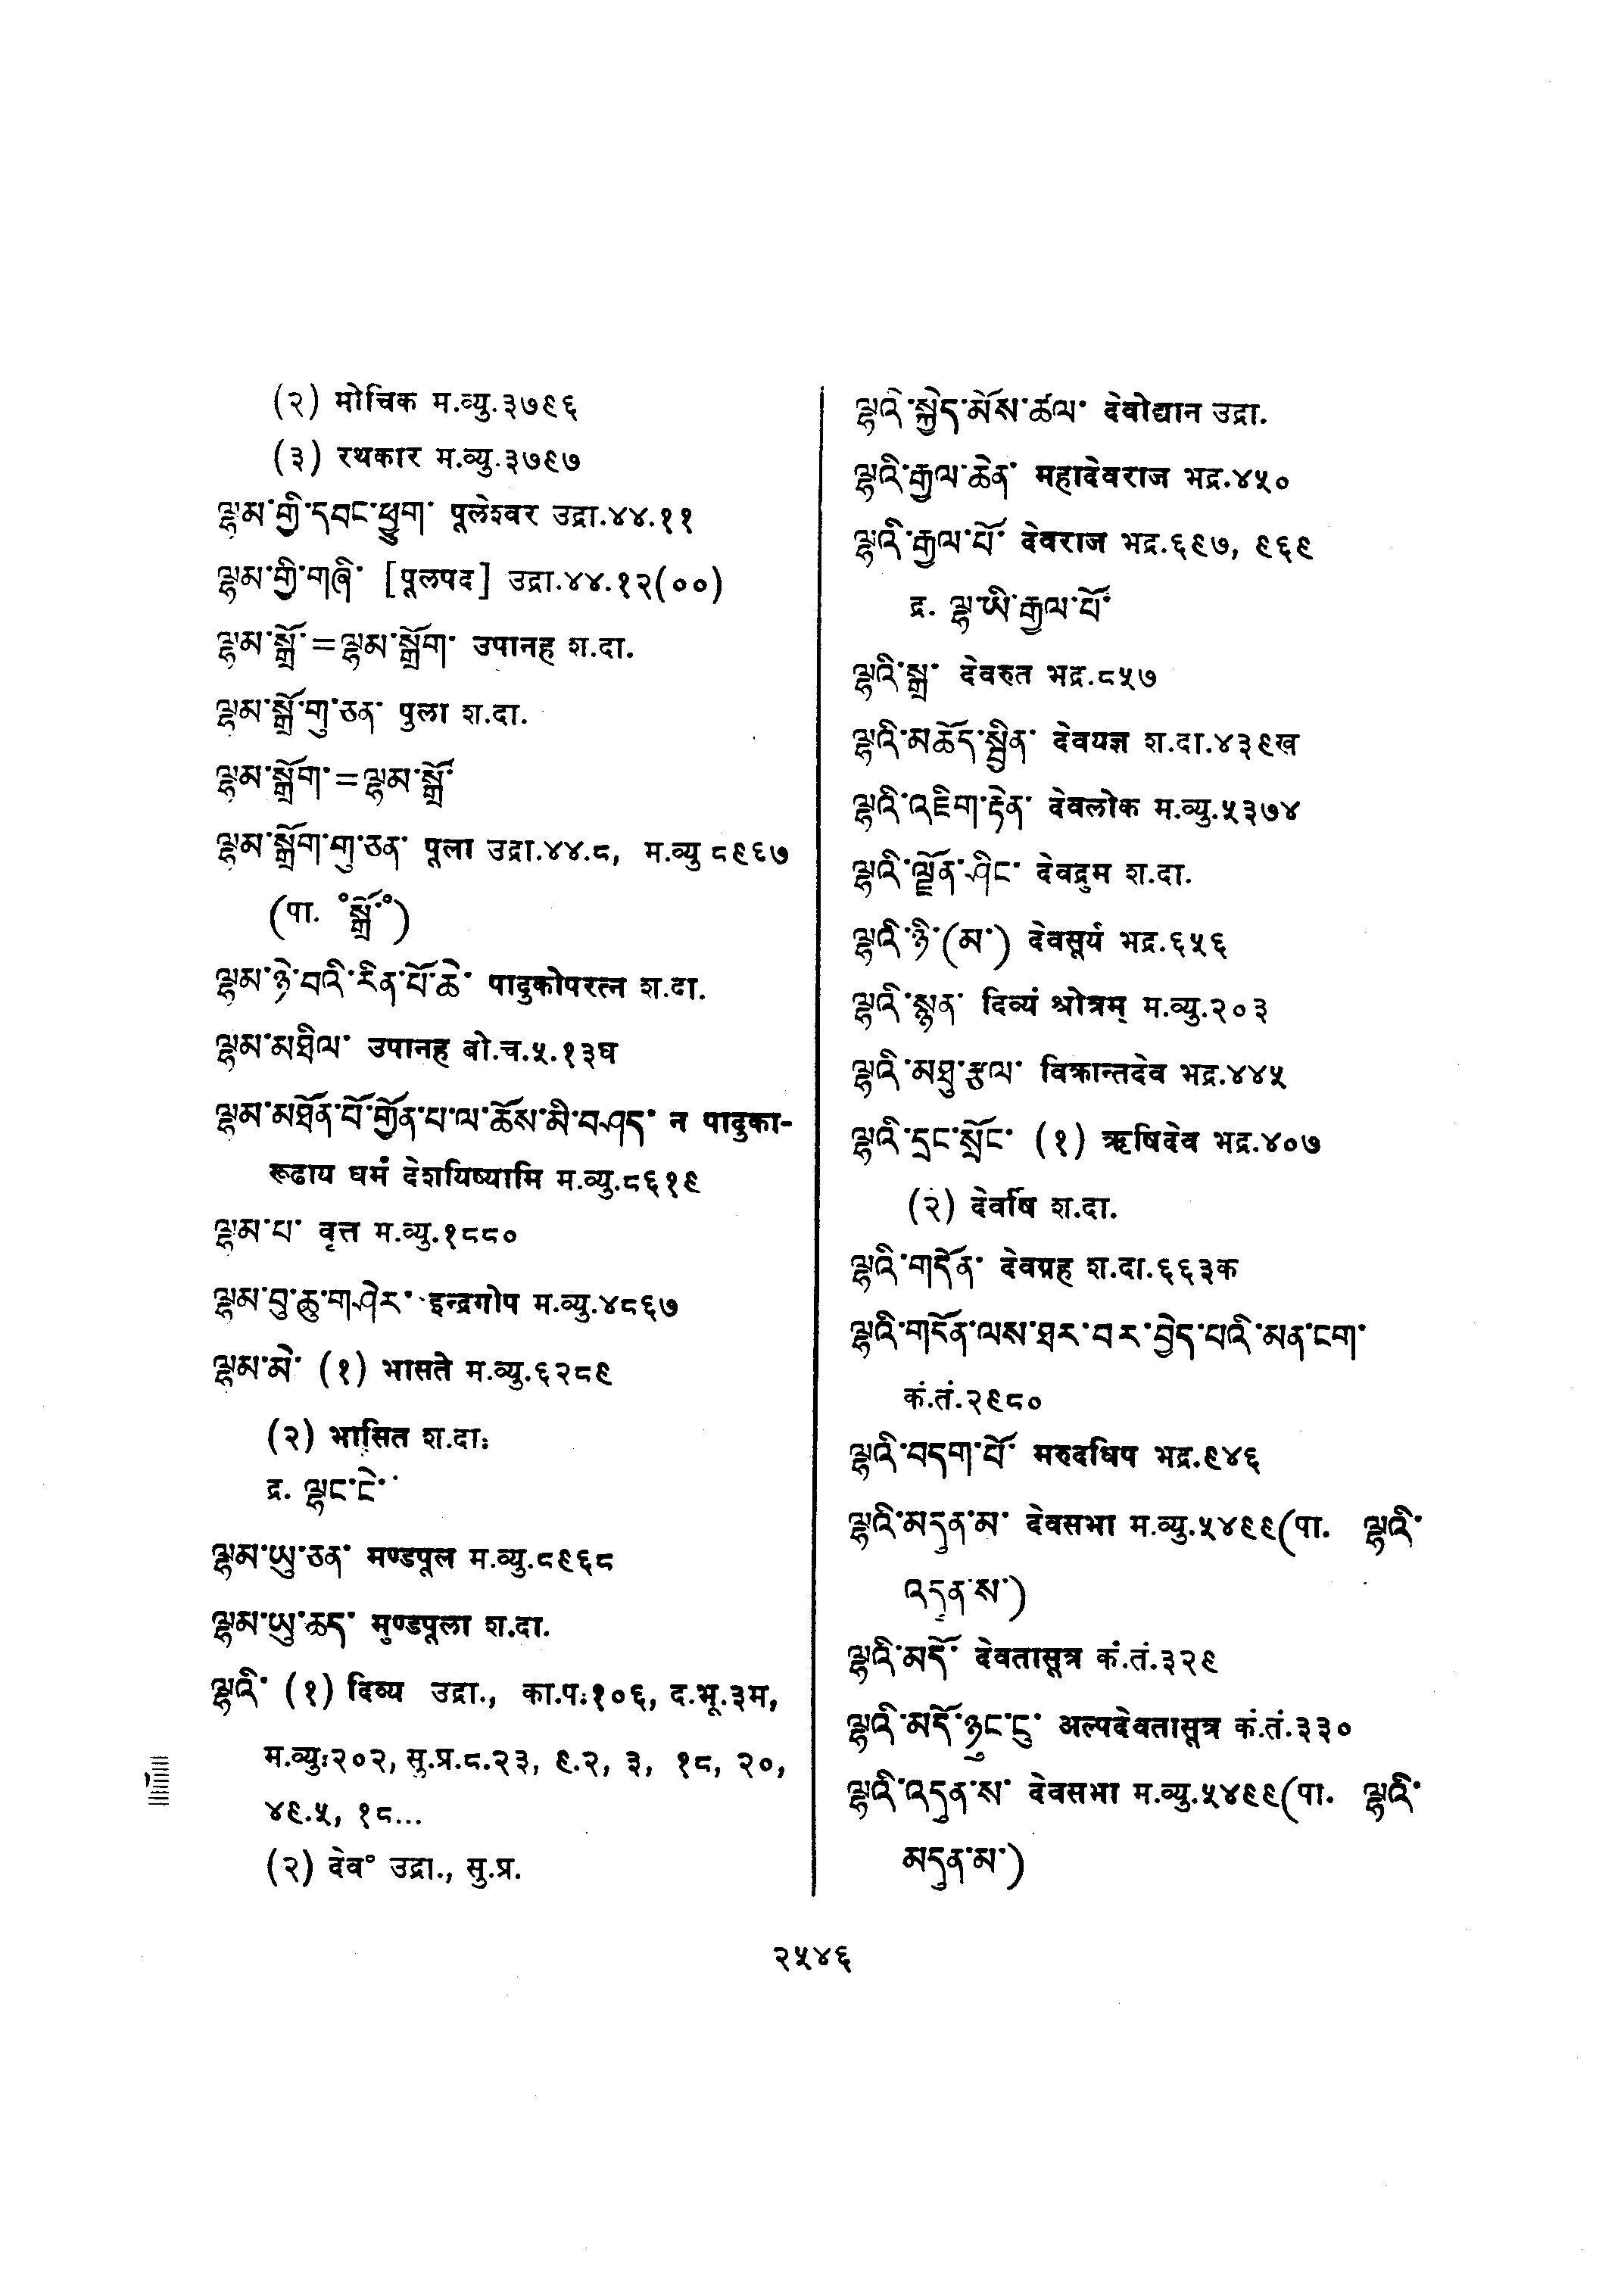 (२) मोचिक म.व्यु.३७९६
(३) रथकार म.व्यु.३७९७
ལྷམ་གྱི་དབང་ཕྱུག་ पूलेश्वर उद्रा.४४.११
ལྷམ་གྱི་གཞི་ [पूलपद] उद्रा.४४.१२(००)
ལྷམ་སྒྲོ་=ལྷམ་སྒྲོག་ उपानह श.दा.
ལྷམ་སྒྲོ་གུ་ཅན་ पुला श.दा.
ལྷམ་སྒྲོག་=ལྷམ་སྒྲོ་
ལྷམ་སྒྲོག་གུ་ཅན་ पूला उद्रा.४४.८, म.व्यु ८९६७
(पा. °སྒྲོ་°)
ལྷམ་ཉེ་བའི་རིན་པོ་ཆེ་ पादुकोपरत्न श.दा.
ལྷམ་མཐིལ་ उपानह बो.च.५.१३घ
ལྷམ་མཐོན་པོ་གྱོན་པ་ལ་ཆོས་མི་བཤད་ न पादुका-
रूढाय धर्मं देशयिष्यामि म.व्यु.८६१९
ལྷམ་པ་ वृत्त म.व्यु.१८८०
ལྷམ་བུ་ཆུ་གཤེར་ इन्द्रगोप म.व्यु.४८६७
ལྷམ་མེ་ (१) भासते म.व्यु.६२८९
(२) भासित श.दा.
द्र. ལྷང་ངེ་
ལྷམ་ཡུ་ཅན་ मण्डपूल म.व्यु.८९६८
ལྷམ་ཡུ་ཆད་ मुण्डपूला श.दा.
ལྷའི་ (१) दिव्य उद्रा., का.प.१०६, द.भू.३म,
म.व्यु.२०२, सु.प्र.८.२३, ९.२, ३, १८, २०,
४९.५, १८...
(२) देव° उद्रा., सु.प्र.
ལྷའི་སྐྱེད་མོས་ཚལ་ देवोद्यान उद्रा.
ལྷའི་རྒྱལ་ཆེན་ महादेवराज भद्र.४५०
ལྷའི་རྒྱལ་པོ་ देवराज भद्र.६९७, ९६९
द्र. ལྷ་ཡི་རྒྱལ་པོ་
ལྷའི་སྒྲ་ देवरुत भद्र.८५७
ལྷའི་མཆོད་སྦྱིན་ देवयज्ञ श.दा.४३९ख
ལྷའི་འཇིག་རྟེན་ देवलोक म.व्यु.५३७४
ལྷའི་ལྗོན་ཤིང་ देवद्रुम श.दा.
ལྷའི་ཉི་(མ་) देवसूर्य भद्र.६५६
ལྷའི་སྙན་ दिव्यं श्रोत्रम् म.व्यु.२०३
ལྷའི་མཐུ་རྩལ་ विक्रान्तदेव भद्र.४४५
ལྷའི་དྲང་སྲོང་ (१) ऋषिदेव भद्र.४०७
(२) देवर्षि श.दा.
ལྷའི་གདོན་ देवग्रह श.दा.६६३क
ལྷའི་གདོན་ལས་ཐར་བར་བྱེད་པའི་མན་ངག་
कं.तं.२९८०
ལྷའི་བདག་པོ་ मरुदधिप भद्र.९४६
ལྷའི་མདུན་མ་ देवसभा म.व्यु.५४९९(पा. ལྷའི་
འདུན་ས་)
ལྷའི་མདོ་ देवतासूत्र कं.तं.३२९
ལྷའི་མདོ་ཉུང་ངུ་ अल्पदेवतासूत्र कं.तं.३३०
ལྷའི་འདུན་ས་ देवसभा म.व्यु.५४९९(पा. ལྷའི་
མདུན་མ་)
२५४६